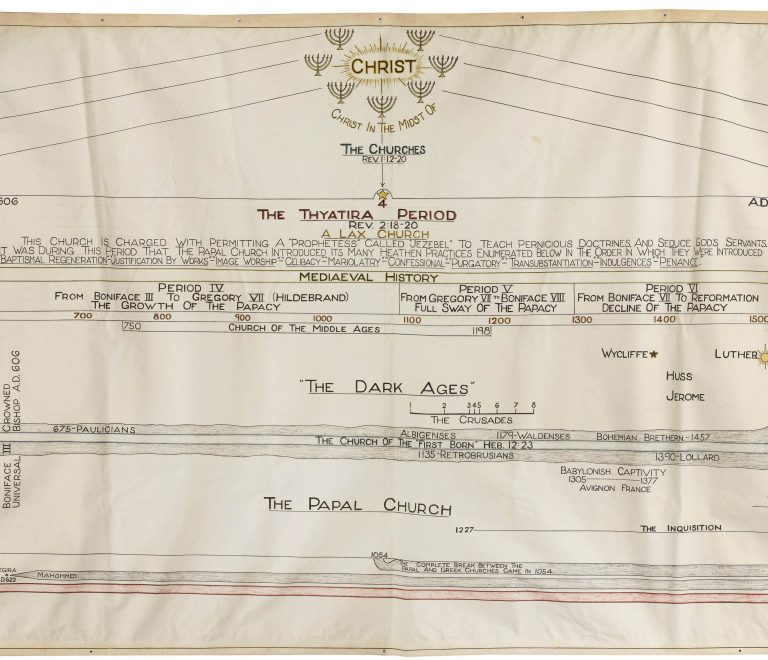 CHRIST
CHRIST IN THE MIDST OF
THE CHURCHES
REV. 1:12-20
606
4
A.D.
THE THYATIRA PERIOD
REV. 2:18-20
A LAX CHURCH
THIS CHURCH IS CHARGED WITH PERMITTING A "PROPHETESS" CALLED "JEZEBEL" TO TEACH PERNICIOUS DOCTRINES, AND SEDUCE GODS SERVANTS.
IT WAS DURING THIS PERIOD THAT THE PAPAL CHURCH INTRODUCED ITS MANY HEATHEN PRACTICES ENUMERATED BELOW IN THE ORDER IN WHICH THEY WERE INTRODUCED
BAPTISMAL REGENERATION-JUSTIFICATION BY WORKS-IMAGE WORSHIP-CELIBACY-MARIOLATRY-CONFESSIONAL-PURGATORY-TRANSUBSTANTIATION-INDULGENCES-PENANCE.
MEDIAEVAL HISTORY
PERIOD IV
FROM BONIFACE III TO GREGORY VII (HILDEBRAND)
THE GROWTH OF THE PAPACY
PERIOD V
FROM GREGORY VII TO BONIFACE VIII
FULL SWAY OF THE PAPACY
PERIOD VI
FROM BONIFACE VII TO REFORMATION
DECLINE OF THE PAPACY
700 800 900 1000 1100 1200 1300 1400 1500
750 CHURCH OF THE MIDDLE AGES 1198
WYCLIFFE
LUTHER
HUSS
JEROME
"THE DARK AGES"
1 2 3 4 5 6 7 8
THE CRUSADES
BONIFACE III CROWNED
UNIVERSAL BISHOP A.D. 606
675-PAULICIANS
ALBIGENSES
1179-WALDENSES
BOHEMIAN BRETHERN-1457
THE CHURCH OF THE "FIRST BORN" HEB. 12:23
1135-RETROBRUSIANS
1390-LOLLARD
BABYLONISH CAPTIVITY
1305 1377
AVIGNON FRANCE
THE PAPAL CHURCH
1227 THE INQUISITION
1054
THE COMPLETE BREAK BETWEEN THE
PAPAL AND GREEK CHURCHES CAME IN 1054
EGIRA
D.622
MAHOMMED